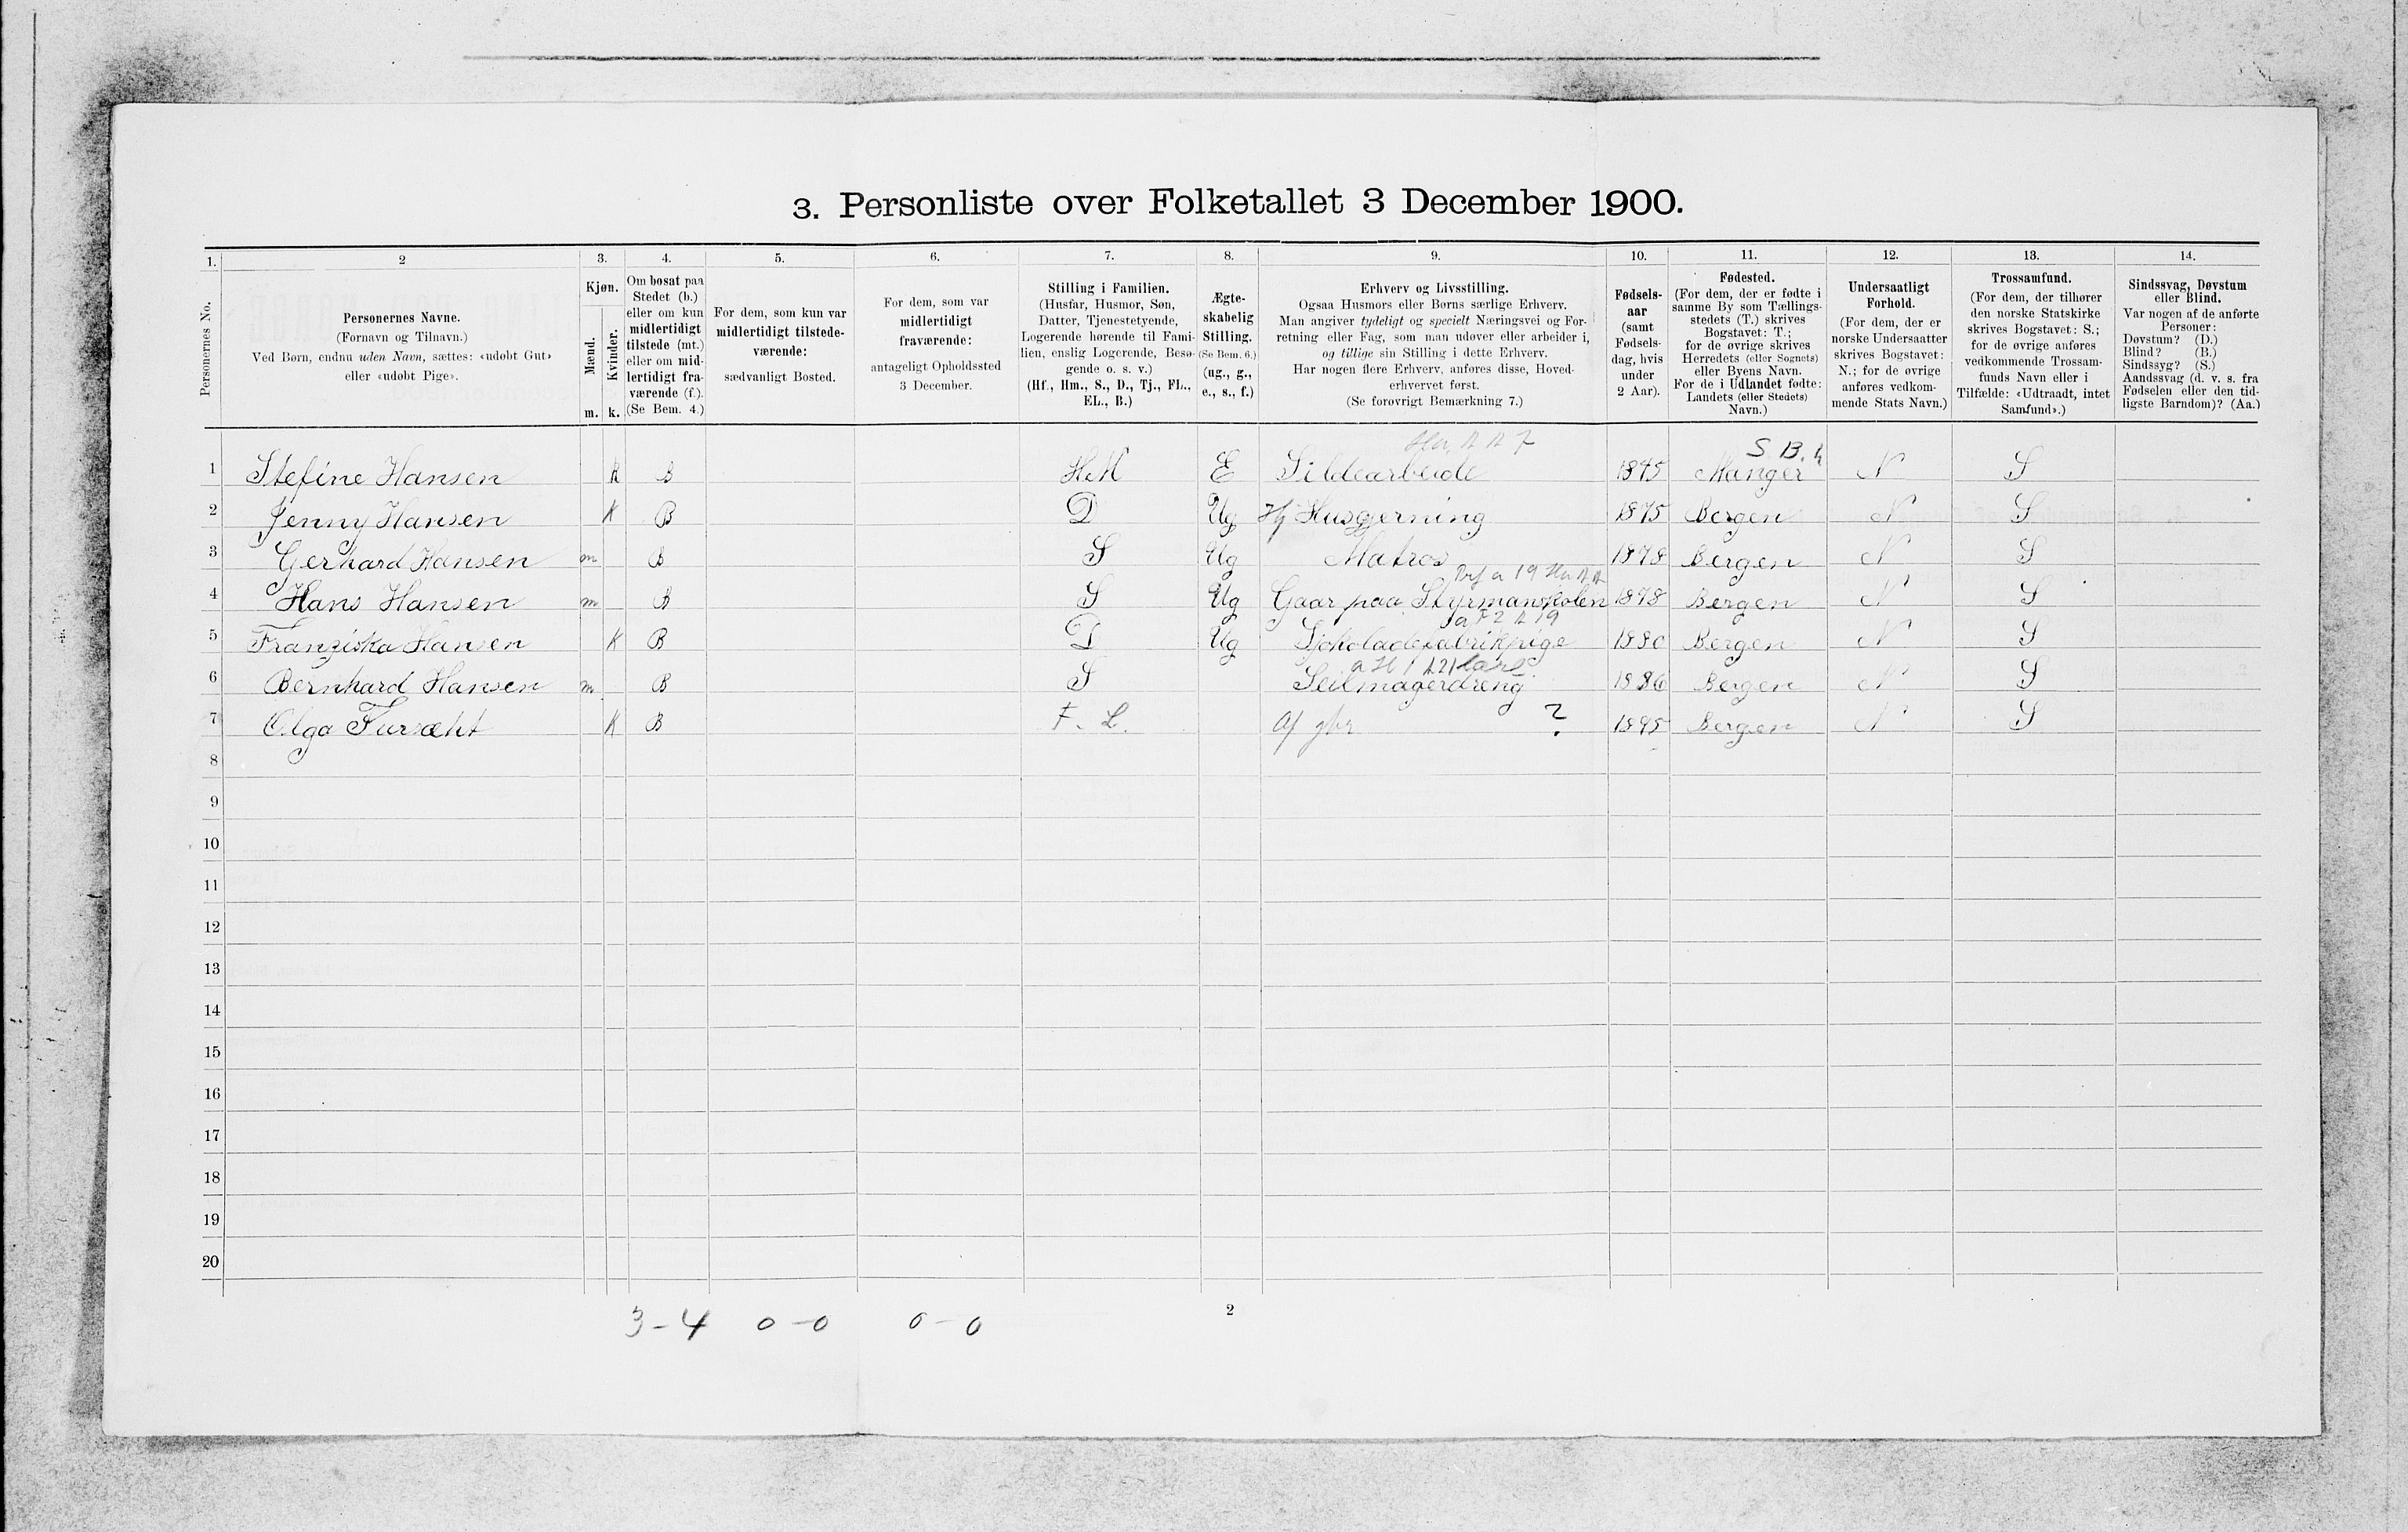 3. Personliste over Folketallet 3 December 1900.
1. 2 3. 4. 5. 6. 7. 8. 9. 10. 11. 12. 13. 14.
Personernes No.
Personernes Navne.
(Fornavn og Tilnavn.)
Ved Børn, endnu uden Navn, sættes: «udøbt Gut»
eller «udøbt Pige».
Kjøn.
Mænd.
Kvinder.
m. k.
Om bosat paa
Stedet (b.)
eller om kun
midlertidigt
tilstede (mt.)
eller om mid-
lertidigt fra-
værende (f.).
(Se Bem. 4.)
For dem, som kun var
midlertidigt tilstede-
værende:
sædvanligt Bosted.
For dem, som var
midlertidigt
fraværende:
antageligt Opholdssted
3 December.
Stilling i Familien.
(Husfar, Husmor, Søn,
Datter, Tjenestetyende,
Logerende hørende til Fami-
lien, enslig Logerende, Besø-
gende o. s. v.)
(Hf., Hm., S., D., Tj., FL.,
EL., B.)
Ægte-
skabelig
Stilling.
(Se Bem. 6.)
(ug., g.,
e., s., f.)
Erhverv og Livsstilling.
Ogsaa Husmors eller Børns særlige Erhverv.
Man angiver tydeligt og specielt Næringsvei og For-
retning eller Fag, som man udøver eller arbeider i,
og tillige sin Stilling i dette Erhverv.
Har nogen flere Erhverv, anføres disse, Hoved-
erhvervet først.
(Se forøvrigt Bemærkning 7.)
Fødsels-
aar
(samt
Fødsels-
dag, hvis
under
2 Aar).
Fødested.
(For dem, der er fødte i
samme By som Tællings-
stedets (T.) skrives
Bogstavet: T.;
for de øvrige skrives
Herredets (eller Sognets)
eller Byens Navn.
For de i Udlandet fødte:
Landets (eller Stedets)
Navn.)
Undersaatligt
Forhold.
(For dem, der er
norske Undersaatter
skrives Bogstavet:
N.; for de øvrige
anføres vedkom-
mende Stats Navn.)
Trossamfund.
(For dem, der tilhører
den norske Statskirke
skrives Bogstavet: S.;
for de øvrige anføres
vedkommende Trossam-
funds Navn eller i
Tilfælde: «Udtraadt, intet
Samfund».)
Sindssvag, Døvstum
eller Blind.
Var nogen af de anførte
Personer:
Døvstum? (D.)
Blind? (B.)
Sindssyg? (S.)
Aandssvag (d. v. s. fra
Fødselen eller den tid-
ligste Barndom)? (Aa.)
S. B. h
1 Stefine Hansen K B HM E Sildearbeide Manger N S
2 Jenny Hansen K B D Ug Hj Husgjerning 1875 Bergen N S
3 Gerhard Hansen m B S Ug Matros 1878 Bergen N S
4 Hans Hansen m B S Ug Gaar paa Styrmanskolen 1878 Bergen N S
5 Franziska Hansen K B D Ug Sjokoladefabrikpige 1880 Bergen N S
6 Bernhard Hansen m B S Seilmagerdreng 1886 Bergen N S
7 Olga K B F. L. ? 1895 Bergen N S
8
9
10
11
12
13
14
15
16
17
18
19
20
3-4 0-0 0-0
2